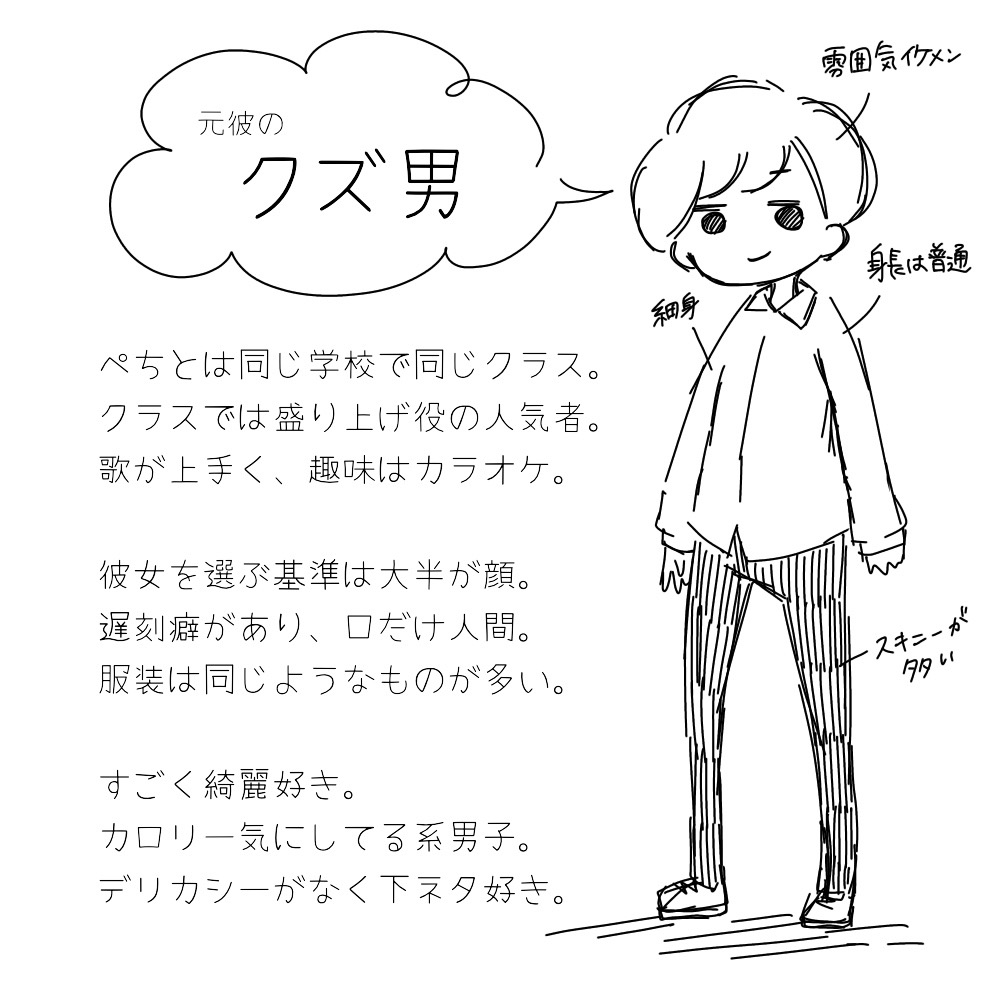 元彼の
クズ男
雰囲気イケメン
身長は普通
細身
スキニーが
多い
ぺちとは同じ学校で同じクラス。
クラスでは盛り上げ役の人気者。
歌が上手く、趣味はカラオケ。
彼女を選ぶ基準は大半が顔。
遅刻癖があり、口だけ人間。
服装は同じようなものが多い。
すごく綺麗好き。
カロリー気にしてる系男子。
デリカシーがなく下ネタ好き。